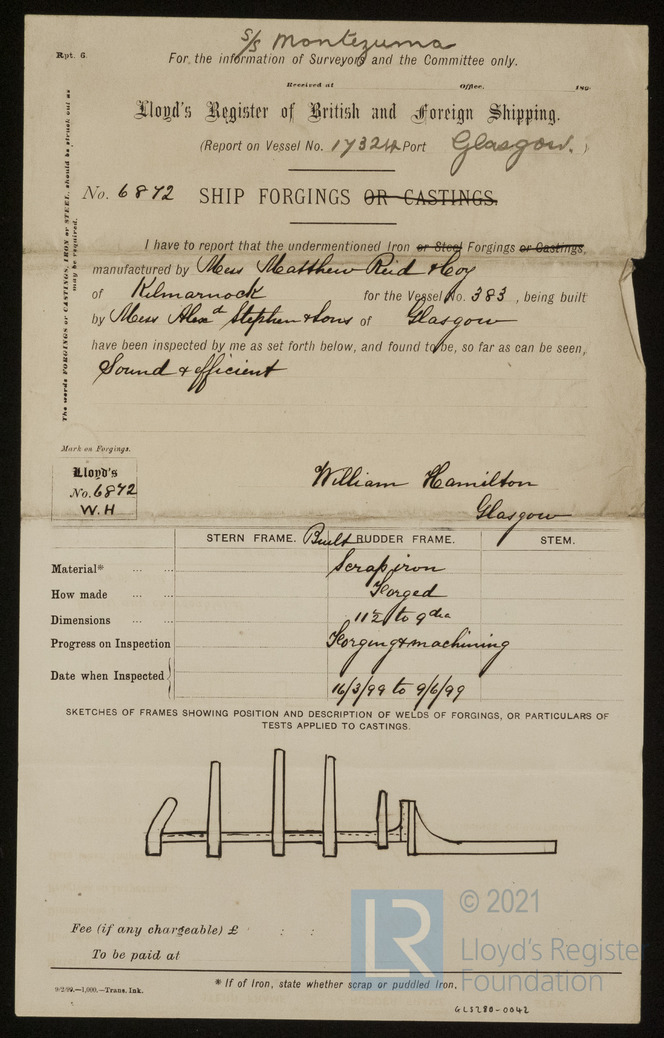 s/s Montezuma
Rpt. 6.
For the information of Surveyors and the Committee only.
Received at Office, 189
Lloyd's Register of British and Foreign Shipping.
(Report on Vessel No. 17324 Port Glasgow.)
No. 6872 SHIP FORGINGS OR CASTINGS.
The words FORGINGS or CASTINGS, IRON or STEEL, should be struck out as
may be required.
I have to report that the undermentioned Iron or Steel Forgings or Castings,
manufactured by Mess Matthew Reid & Coy
of Kilmarnock for the Vessel No. 383, being built
by Mess Alexd Stephen & Sons of Glasgow
have been inspected by me as set forth below, and found to be, so far as can be seen,
Sound & efficient
Mark on Forgings.
Lloyd's
No. 6872
W. H
William Hamilton
Glasgow
STERN FRAME. Built RUDDER FRAME. STEM.
Material* ... ... Scrap iron
How made ... ... Forged
Dimensions ... ... 11½ to 9 dia
Progress on Inspection Forging & machining
Date when Inspected 16/3/99 to 9/6/99
SKETCHES OF FRAMES SHOWING POSITION AND DESCRIPTION OF WELDS OF FORGINGS, OR PARTICULARS OF
TESTS APPLIED TO CASTINGS.
Fee (if any chargeable) £ : :
To be paid at
* If of Iron, state whether scrap or puddled Iron.
9/2/99.—1,000.—Trans. Ink.
GLS280-0042
LR
© 2021
Lloyd's Register
Foundation